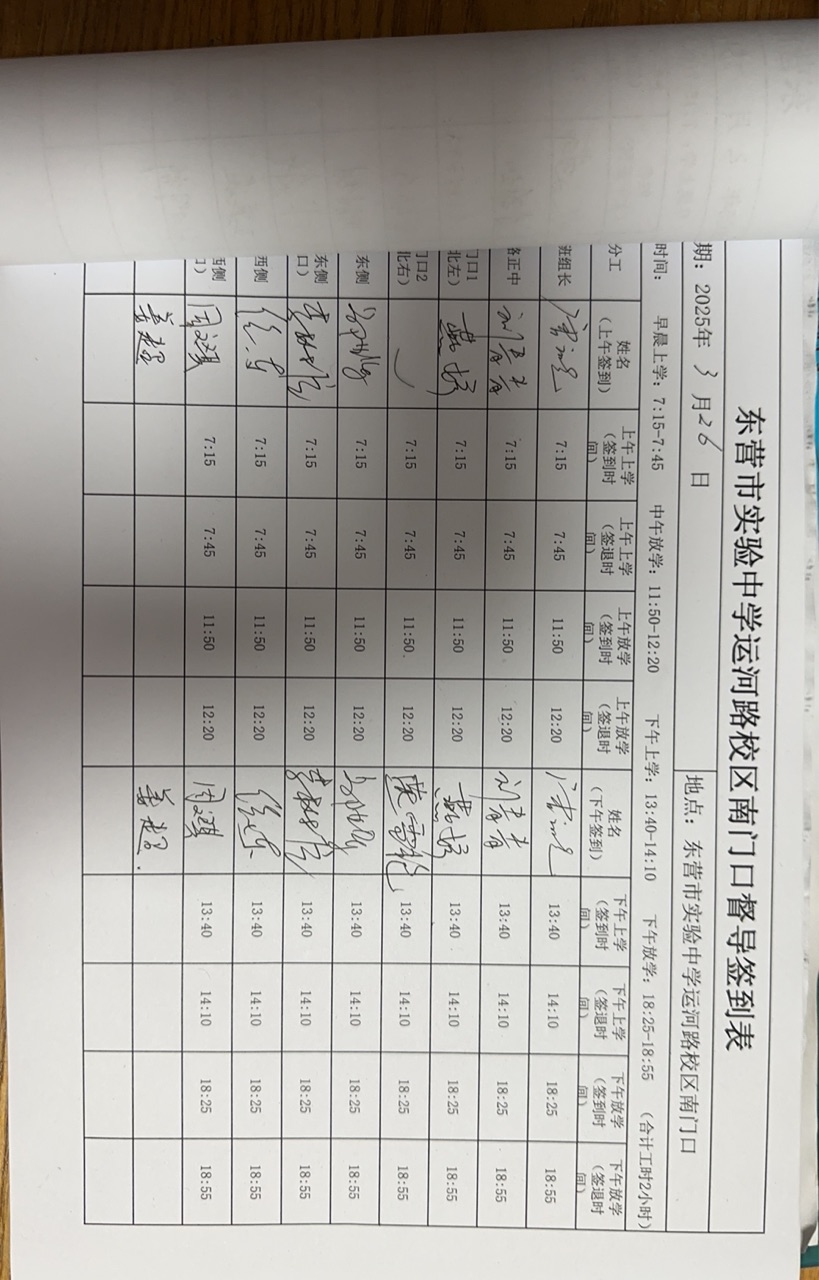 东营市实验中学运河路校区南门口督导签到表
期：2025年 3 月 26 日 地点：东营市实验中学运河路校区南门口
时间： 早晨上学：7:15-7:45 中午放学：11:50-12:20 下午上学：13:40-14:10 下午放学：18:25-18:55 （合计工时2小时）
分工 姓名（上午签到） 上午上学（签到时间） 上午上学（签退时间） 上午放学（签到时间） 上午放学（签退时间） 姓名（下午签到） 下午上学（签到时间） 下午上学（签退时间） 下午放学（签到时间） 下午放学（签退时间）
班组长 7:15 7:45 11:50 12:20 13:40 14:10 18:25 18:55
路正中 刘青青 7:15 7:45 11:50 12:20 刘青青 13:40 14:10 18:25 18:55
门口1
北左） 7:15 7:45 11:50 12:20 13:40 14:10 18:25 18:55
门口2
北右） 7:15 7:45 11:50 12:20 13:40 14:10 18:25 18:55
东侧 7:15 7:45 11:50 12:20 13:40 14:10 18:25 18:55
东侧
口） 7:15 7:45 11:50 12:20 13:40 14:10 18:25 18:55
西侧 7:15 7:45 11:50 12:20 13:40 14:10 18:25 18:55
西侧
口） 周文琪 7:15 7:45 11:50 12:20 周文琪 13:40 14:10 18:25 18:55